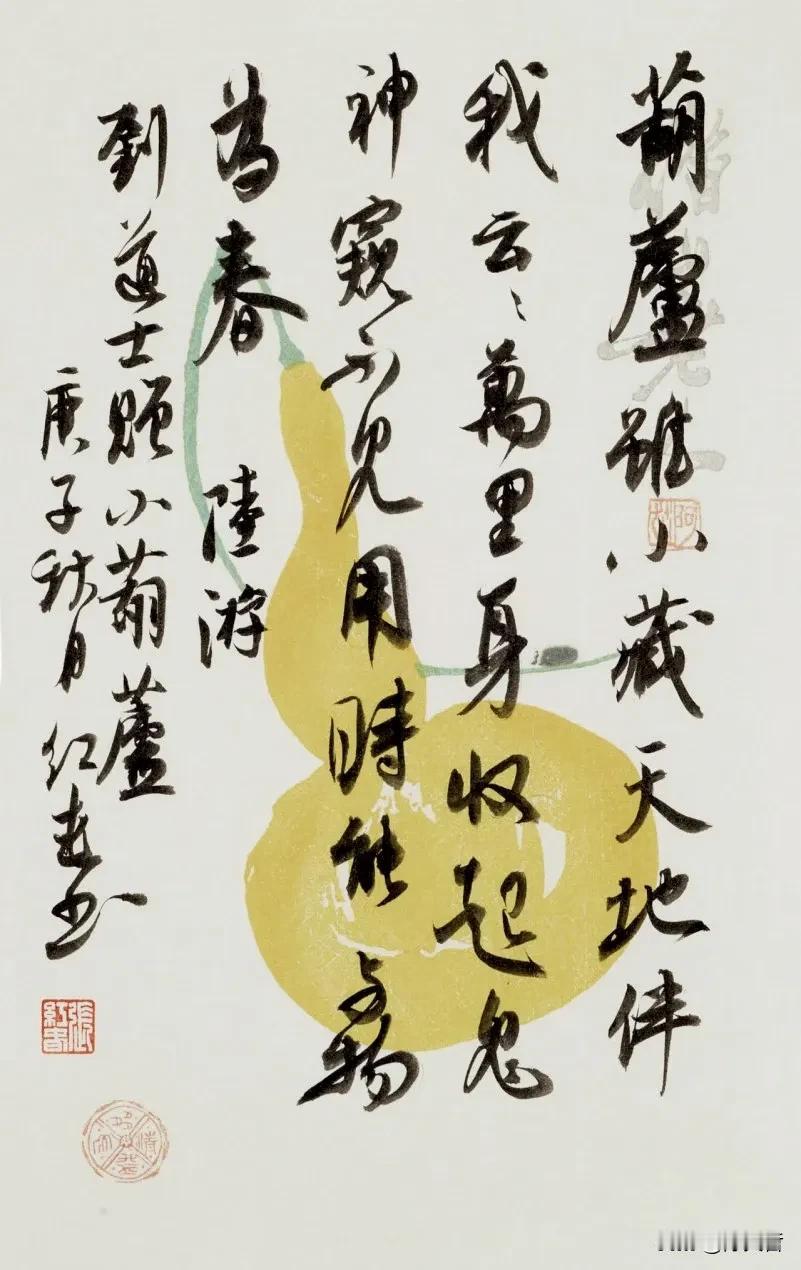 葫蘆雖小藏天地伴
我云〻萬里身收起鬼
神窺不見用時能與物
為春 陸游
劉道士贈小葫蘆
庚子秋月红春书